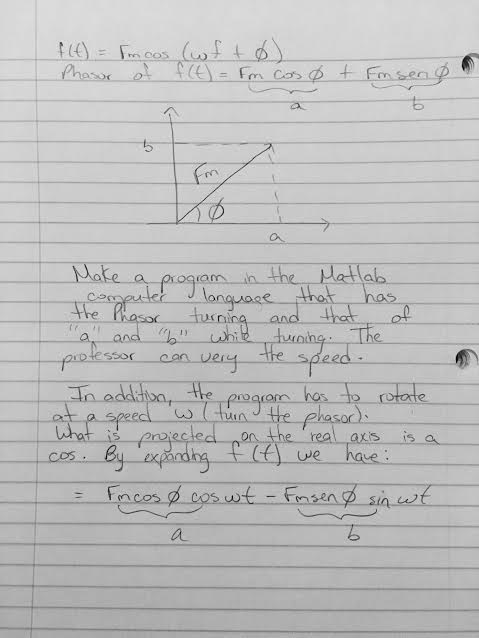 f(t) = Fm cos (wt + φ)
Phasor of f(t) = Fm cos φ + Fm sen φ
a b
b
Fm
φ
a
Make a program in the Matlab
computer language that has
the Phasor turning and that of
"a" and "b" while turning. The
professor can very the speed.
In addition, the program has to rotate
at a speed w (turn the phasor).
What is projected on the real axis is a
cos. By expanding f(t) we have:
= Fm cos φ cos wt - Fm sen φ sin wt
a b